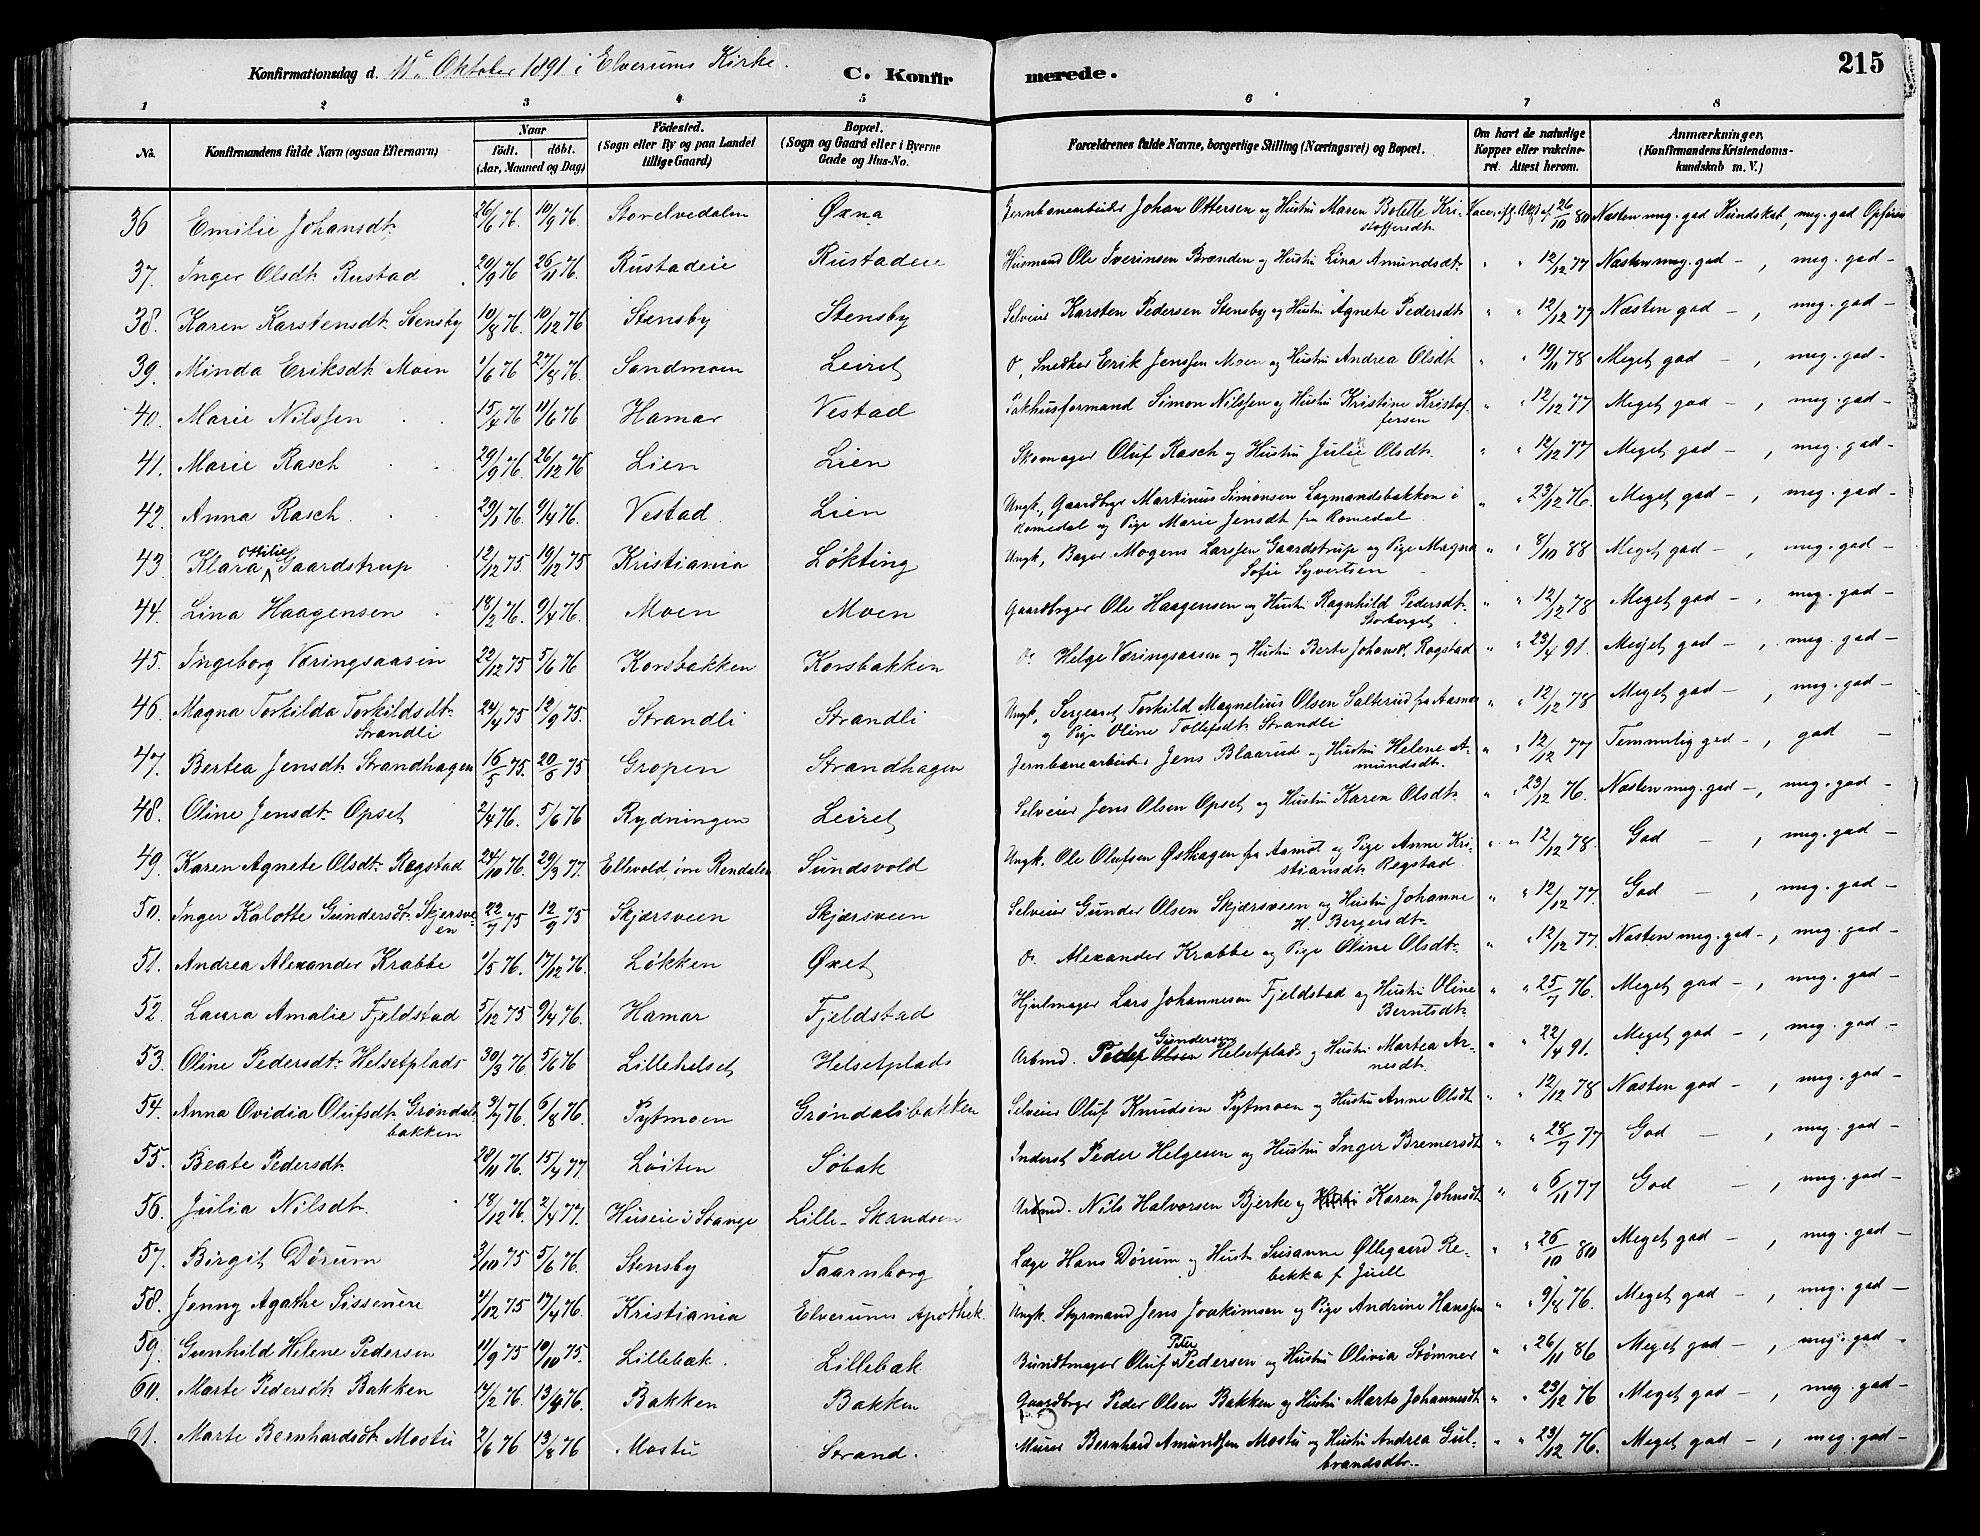 Konfirmationsdag d. 11te Oktober 1891 i Elverums Kirke. C. Konfirmerede. 215
1 2 3 4 5 6 7 8
No. Konfirmandens fulde Navn (ogsaa Efternavn) Naar født. døbt. (Aar, Maaned og Dag) Fødested. (Sogn eller By og paa Landet tillige Gaard) Bopæl. (Sogn og Gaard eller i Byerne Gade og Hus-No. Forældrenes fulde Navne, borgerlige Stilling (Næringsvei) og Bopæl. Om havt de naturlige Kopper eller vakcineret. Attest herom. Anmærkninger, (Konfirmandens Kristendomskundskab m. V.)
36 Emilie Johansdt. 26/6 76 10/9 76 Storelvedalen Øxna Jernbanearbeider Johan Ottersen og Hustru Maren Botette Kristoffersdt. Vacc. ifg. Att. af 26/10 80 Næsten meg. god Kundskab, meg. god
37. Inger Olsdt. Rustad 20/9 76 26/11 76. Rustadeie Rustadeie Husmand Ole Iverinsen Brænden og Hustru Lina Amundsdt. " " 12/12 77 Næsten meg. god - , meg. god -
38. Karen Karstensdt. Stensby 10/8 76. 10/12 76 Stensby Stensby Selveier Karsten Pedersen Stensby og Hustru Agnete Pedersdt. " " 12/12 77 Næsten god - , meg. god -
39. Minda Eriksdt. Moen 1/6 76 27/8 76. Sandmoen Leiret do, Snedker Erik Jenssen Moen og Hustru Andrea Olsdt. " " 19/11 78 Meget god - , meg. god -
40. Marie Nilssen 15/4 76 11/6 76 Hamar Vestad Pakhusformand Simon Nilssen og Hustru Kristine Kristoffersen " " 12/12 77 Meget god - , meg. god -
41. Marie Rasch 29/9 76. 26/12 76 Lien Lien Skomager Oluf Rasch og Hustru Julie Olsdt. " " 12/12 77 Meget god - , meg. god -
42. Anna Rasch. 29/1 76. 9/4 76. Vestad. Lien Ungk., Gaardbrger Martinus Simonsen Lagmandsbakken i Romedal og Pige Marie Jensdt. fra Romedal. " " 23/12 76. Meget god - , meg. god -
43. Klara Ottilie Gaardstrup 12/12 75. 19/12 75 Kristiania Løkting Ungk., Bager Mogens Larssen Gaardstrup og Pige Magna Sofie Syvertsen " " 8/10 88 Meget god - , meg. god -
44. Lina Haagensen 18/2 76. 9/4 76. Moen Moen Gaardbrger Ole Haagensen og Hustru Ragnhild Pedersdt. Storberget " " 12/12 78 Meget god - , meg. god -
45. Ingeborg Væringsaasen 22/12 75 5/6 76 Korsbakken Korsbakken do. Helge Væringsaasen og Hustru Berte Johansdt. Rogstad " " 23/4 91. Meget god - , meg. god -
46. Magna Torkilda Torkildsdt. Strandli 24/4 75 12/9 75. Strandli Strandli Ungk., Sergeant Torkild Magnelius Olsen Salterud fra Aasnes og Pige Oline Tollefsdt. Strandli " " 12/12 78 Meget god - , meg. god -
47. Bertea Jensdt. Strandhagen 16/5 75. 20/6 75 Gropen Strandhagen Jernbanearbeider Jens Blaarud og Hustru Helene Amundsdt. " " 12/12 77 Temmelig god - , god -
48. Oline Jensdt. Opset 2/4 76. 5/6 76 Rydningen Leiret Selveier Jens Olsen Opset og Hustru Karen Olsdt. " " 23/12 76. Næsten meg. god - , meg. god -
49. Karen Agnete Olsdt. Rogstad 24/10 76. 29/3 77. Ellevold, øvre Rendalen Sundsvold Ungk. Ole Olufsen Østhagen fra Aamot og Pige Anne Kristiansdt. Rogstad " " 12/12 78. God - , meg. god -
50. Inger Kalotte Gundersdt. Skjærsveen 22/7 75 12/9 75 Skjærsveen Skjærsveen Selveier Gunder Olsen Skjærsveen og Hustru Johanne H. Bergersdt. " " 12/12 77. God - , meg. god -
51. Andrea Alexander Krabbe 1/5 76. 17/12 76. Løkken Øxet do. Alexander Krabbe og Pige Oline Olsdt. " " 12/12 77. Næsten meg. god - , meg. god -
52. Laura Amalie Fjeldstad 5/12 75 9/4 76. Hamar Fjeldstad Hjulmager Lars Johannesen Fjeldstad og Hustru Oline Berntsdt. " " 25/7 76. Meget god - , meg. god -
53. Oline Pedersdt. Helsetplads 30/3 76. 5/6 76 Lillehelset Helsetplads Arbmd. Peder Olsen Gundersen Helsetplads og Hustru Martea Arnesdt. " " 22/4 91. Meget god - , meg. god -
54. Anna Ovidia Olufsdt. Grøndalsbakken 3/7 76. 6/8 76. Pytmoen Grøndalsbakken Selveier Oluf Knudsen Pytmoen og Hustru Anne Olsdt. " " 12/12 78 Næsten god - , meg. god -
55. Beate Pedersdt. 20/11 76. 15/4 77. Løiten Søbak Inderst Peder Helgesen og Hustru Inger Bremersdt. " " 28/7 77 God - , meg. god -
56. Julia Nilsdt. 18/12 76. 2/4 77. Huseie i Stange Lille-Skandsen Arbmd. Nils Halvorsen Bjerke og Hustru Karen Johnsdt. " " 6/11 77 God - , meg. god -
57. Birgit Dørum 3/10 75 5/6 76. Stensby Taarnborg Læge Hans Dørum og Hustru Susanne Øllegaard Rebekka f. Juell " " 26/10 80 Meget god - , meg. god -
58. Jenny Agathe Sissenere 1/12 75 17/4 76. Kristiania Elverums Apothek. Ungk. Styrmand Jens Joakimsen og Pige Andrine Hanssen " " 9/8 76. Meget god - , meg. god -
59. Gunhild Helene Pedersen 11/9 75 10/10 75. Lillebæk. Lillebæk Bundtmager Oluf Peter Pedersen og Hustru Olivia Strømner " " 26/11 86 Meget god - , meg. god -
60. Marte Pedersdt. Bakken 17/2 76. 13/4 76. Bakken Bakken Gaardbrger Peder Olsen Bakken og Hustru Marte Johannesdt. " " 23/12 76 Meget god - , meg. god -
61. Marte Bernhardsdt. Mostu 2/6 76 13/8 76 Mostu Strand. Murer Bernhard Amundsen Mostu og Hustru Andrea Gulbrandsdtr. " " 23/12 76. Meget god - , meg. god -